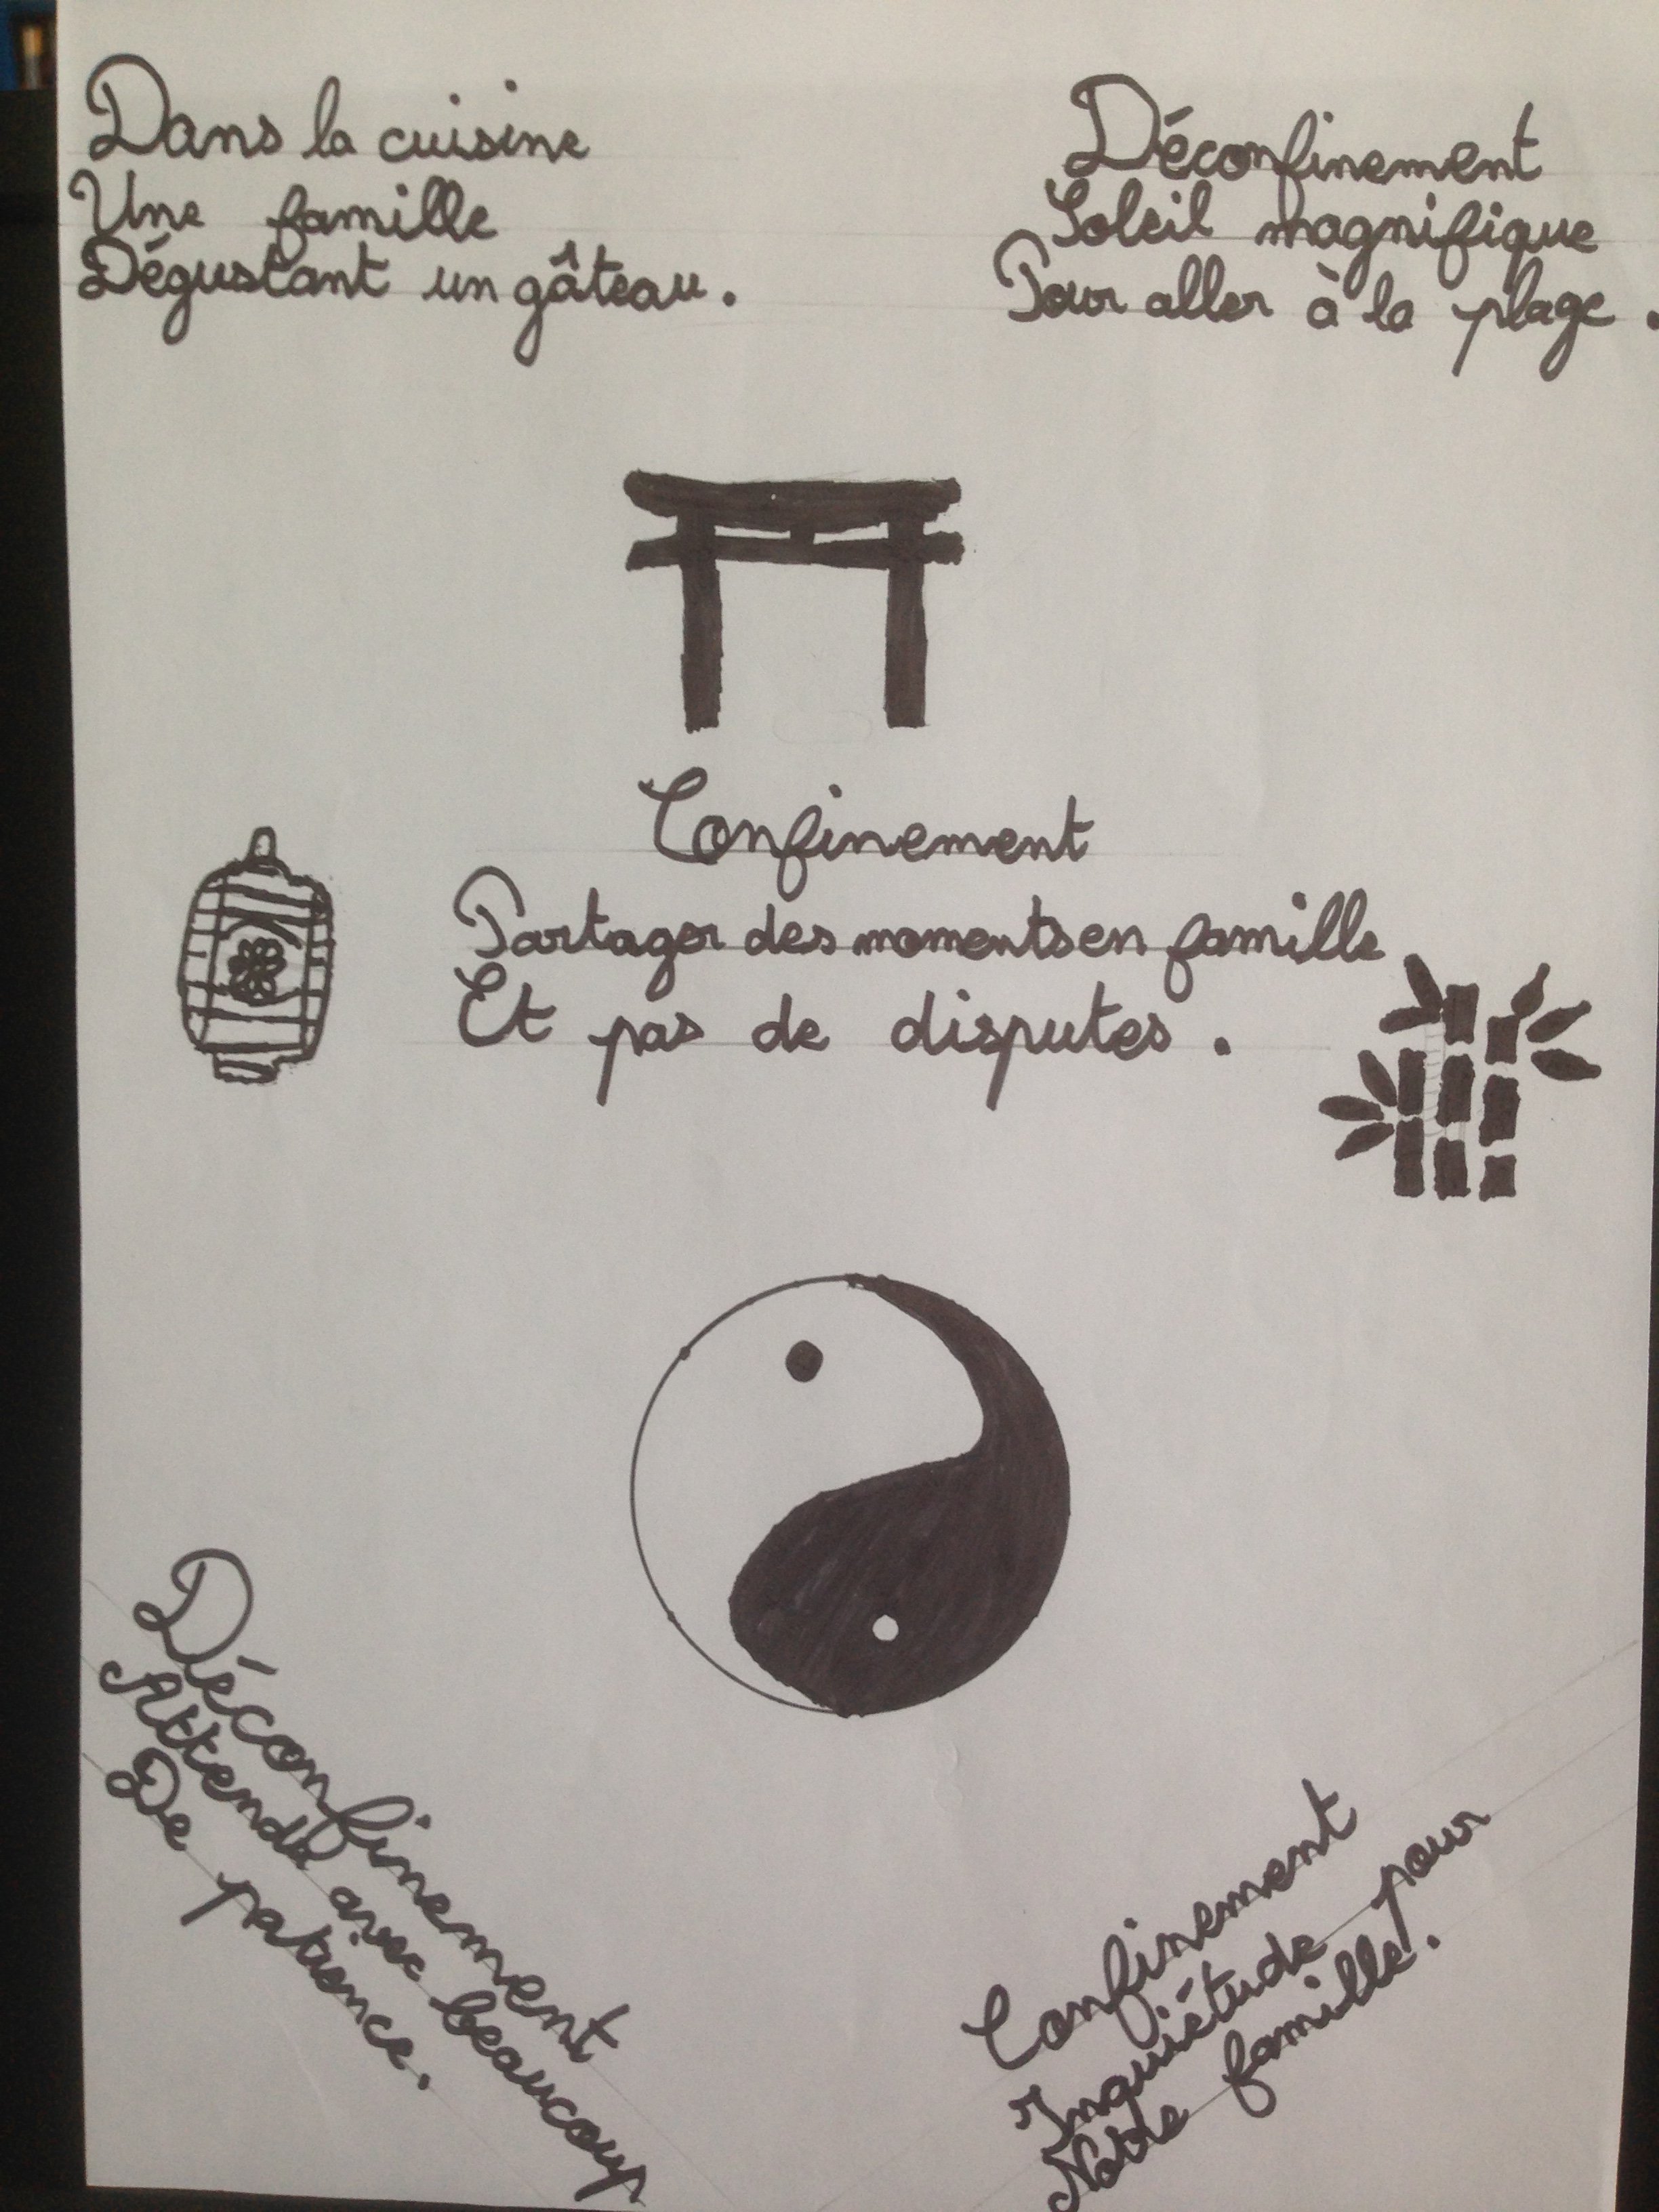 Dans la cuisine
Une famille
Dégustant un gâteau.
Déconfinement
Soleil magnifique
Pour aller à la plage.
Confinement
Partager des moments en famille
Et pas de disputes.
Déconfinement
Attendu avec beaucoup
De patience.
Confinement
Inquiétude pour
Notre famille.